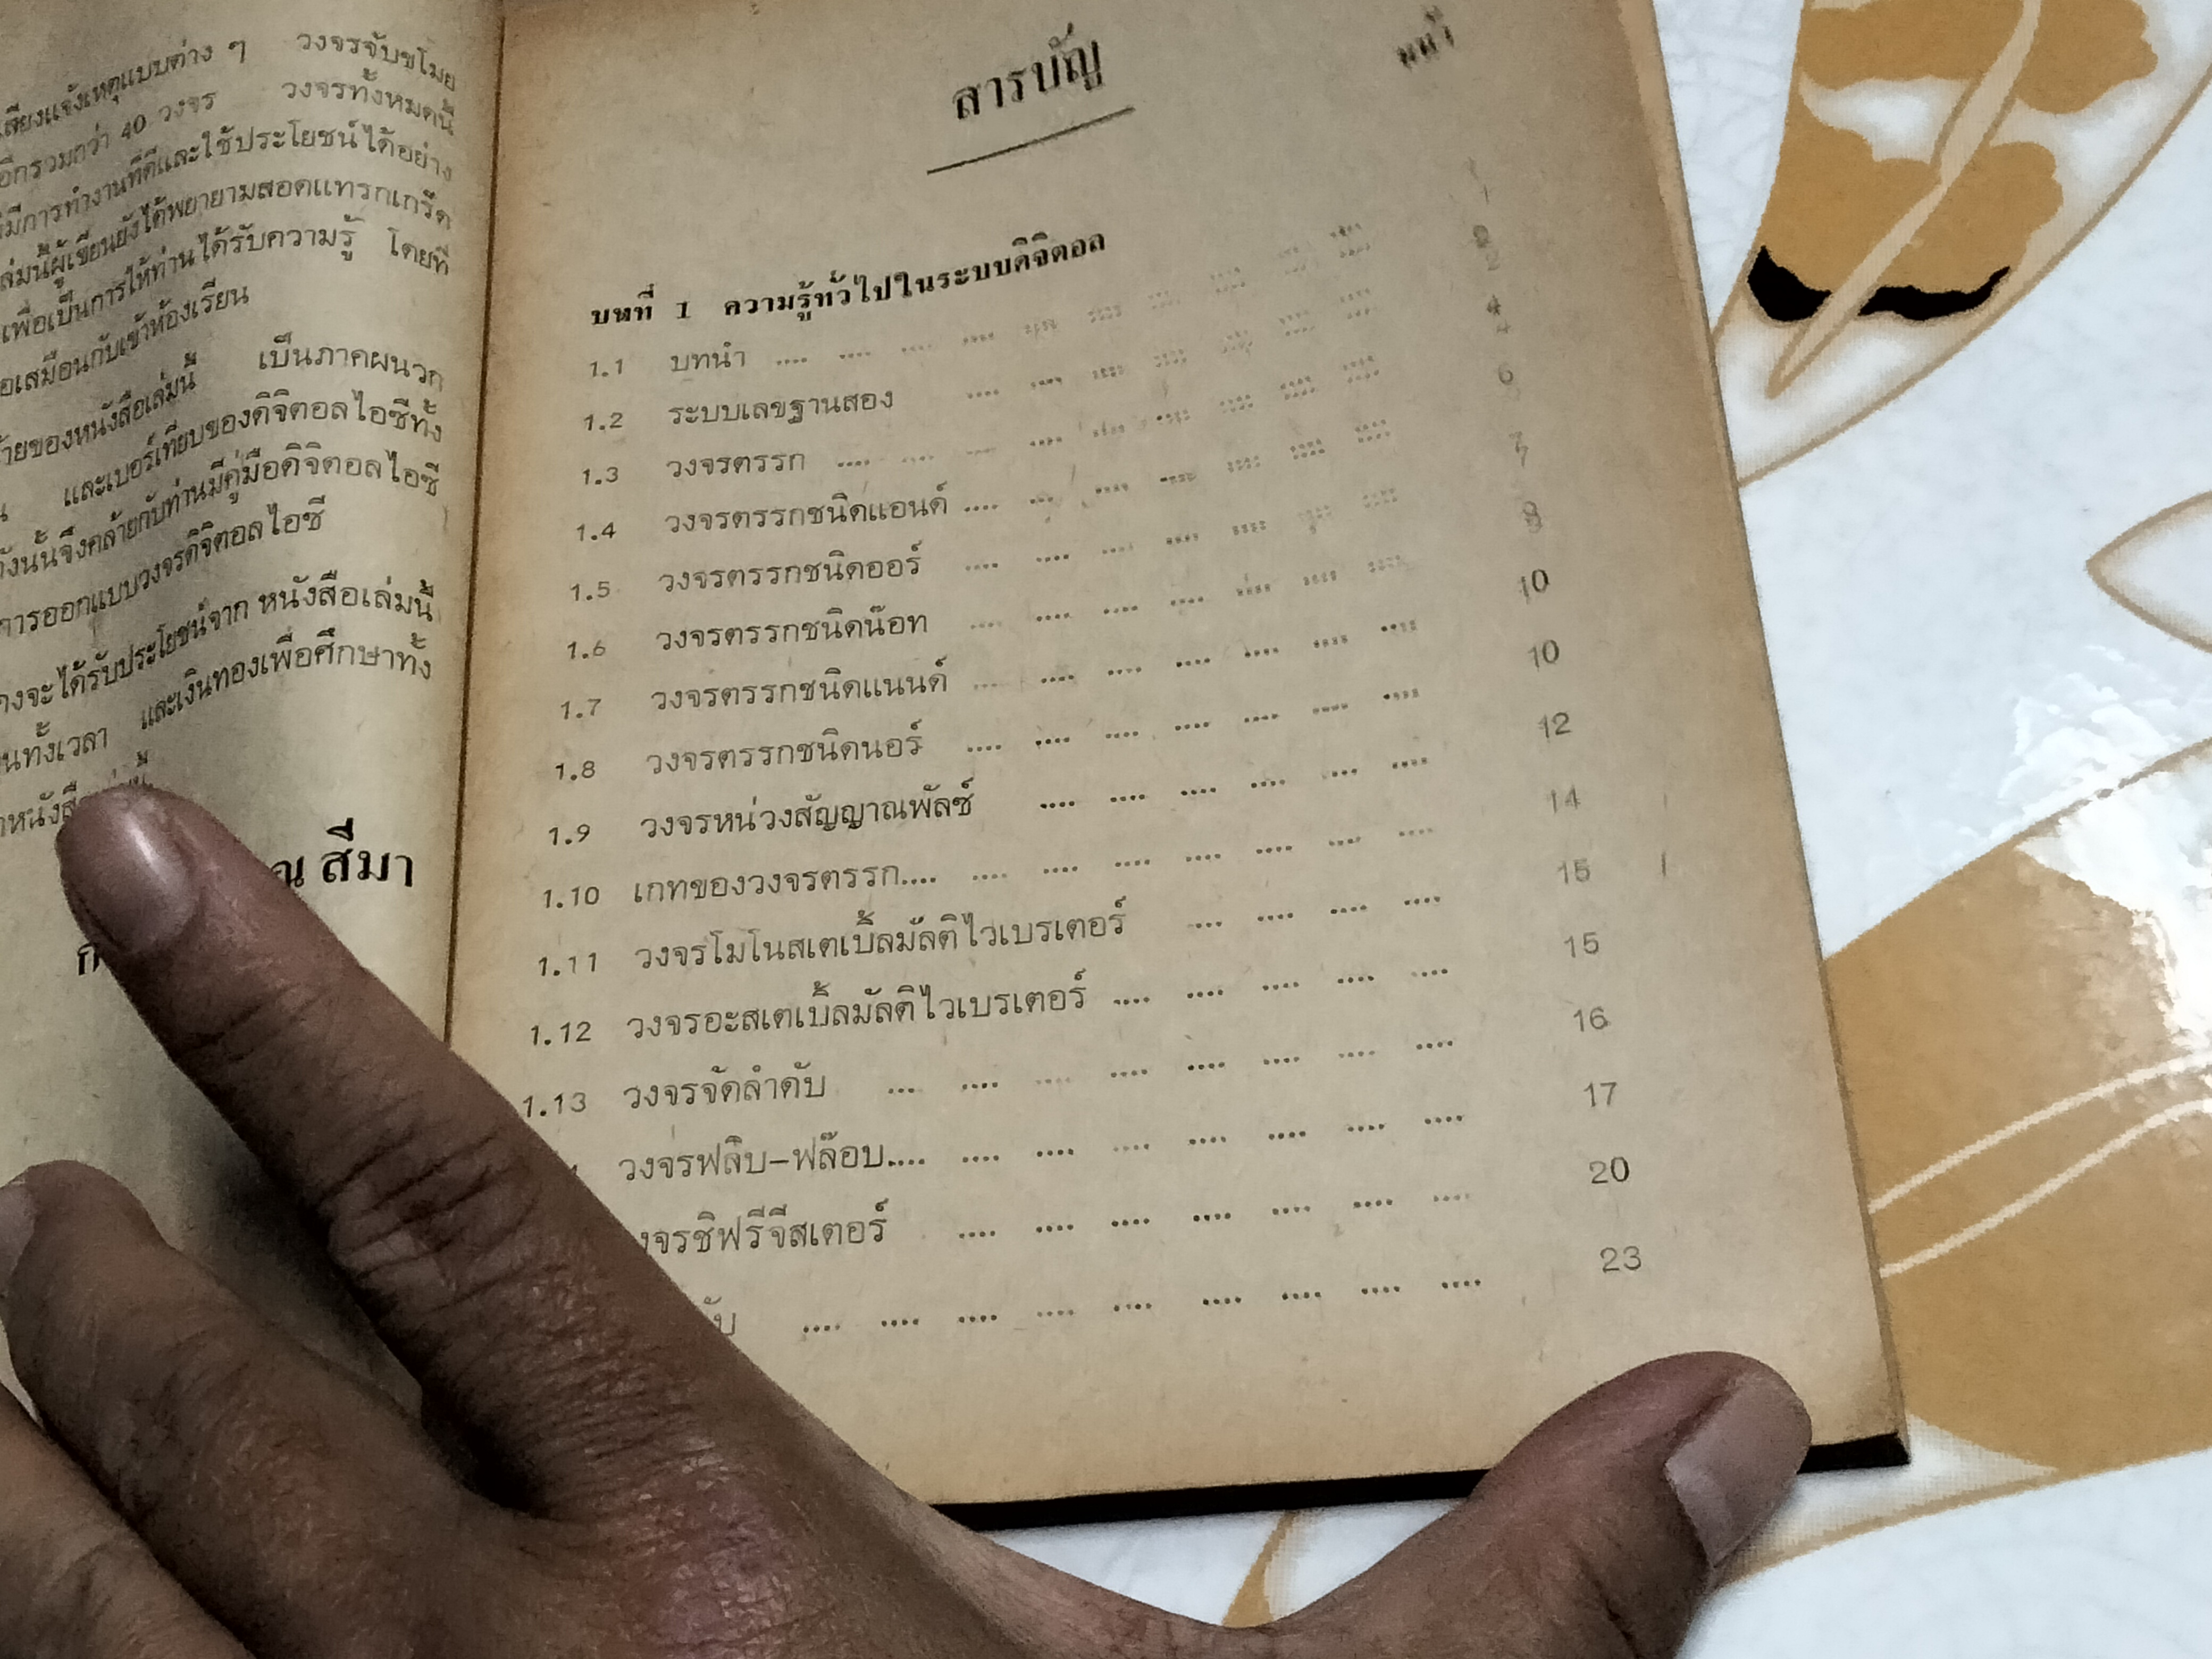 เสียงแจ้งเหตุแบบต่าง ๆ วงจรจับขโมย
อีกรวมกว่า 40 วงจร วงจรทั้งหมดนี้
มีการทำงานที่ดีและใช้ประโยชน์ได้อย่าง
ล่มนี้ผู้เขียนยังได้พยายามสอดแทรกเกร็ด
เพื่อเป็นการให้ท่านได้รับความรู้ โดยที่
อเสมือนกับเข้าห้องเรียน
ายของหนังสือเล่มนี้ เป็นภาคผนวก
น และเบอร์เทียบของดิจิตอลไอซีทั้ง
ังนั้นจึงคล้ายกับท่านมีคู่มือดิจิตอลไอซี
การออกแบบวงจรดิจิตอลไอซี
างจะได้รับประโยชน์จาก หนังสือเล่มนี้
นทั้งเวลา และเงินทองเพื่อศึกษาทั้ง
ณ สีมา
สารบัญ
หน้า
บทที่ 1 ความรู้ทั่วไปในระบบดิจิตอล 1
1.1 บทนำ .... .... .... .... .... .... .... .... .... 2
1.2 ระบบเลขฐานสอง .... .... .... .... .... .... .... 4
1.3 วงจรตรรก .... .... .... .... .... .... .... .... 6
1.4 วงจรตรรกชนิดแอนด์ .... .... .... .... .... .... .... 7
1.5 วงจรตรรกชนิดออร์ .... .... .... .... .... .... .... 8
1.6 วงจรตรรกชนิดน๊อท .... .... .... .... .... .... .... 10
1.7 วงจรตรรกชนิดแนนด์ .... .... .... .... .... .... .... 10
1.8 วงจรตรรกชนิดนอร์ .... .... .... .... .... .... .... 12
1.9 วงจรหน่วงสัญญาณพัลซ์ .... .... .... .... .... .... 14
1.10 เกทของวงจรตรรก.... .... .... .... .... .... .... .... 15
1.11 วงจรโมโนสเตเบิ้ลมัลติไวเบรเตอร์ .... .... .... .... 15
1.12 วงจรอะสเตเบิ้ลมัลติไวเบรเตอร์ .... .... .... .... .... 16
1.13 วงจรจัดลำดับ .... .... .... .... .... .... .... .... 17
วงจรฟลิบ-ฟล๊อบ.... .... .... .... .... .... .... .... 20
งจรชิฟรีจีสเตอร์ .... .... .... .... .... .... .... 23
ับ .... .... .... .... .... .... .... .... ....